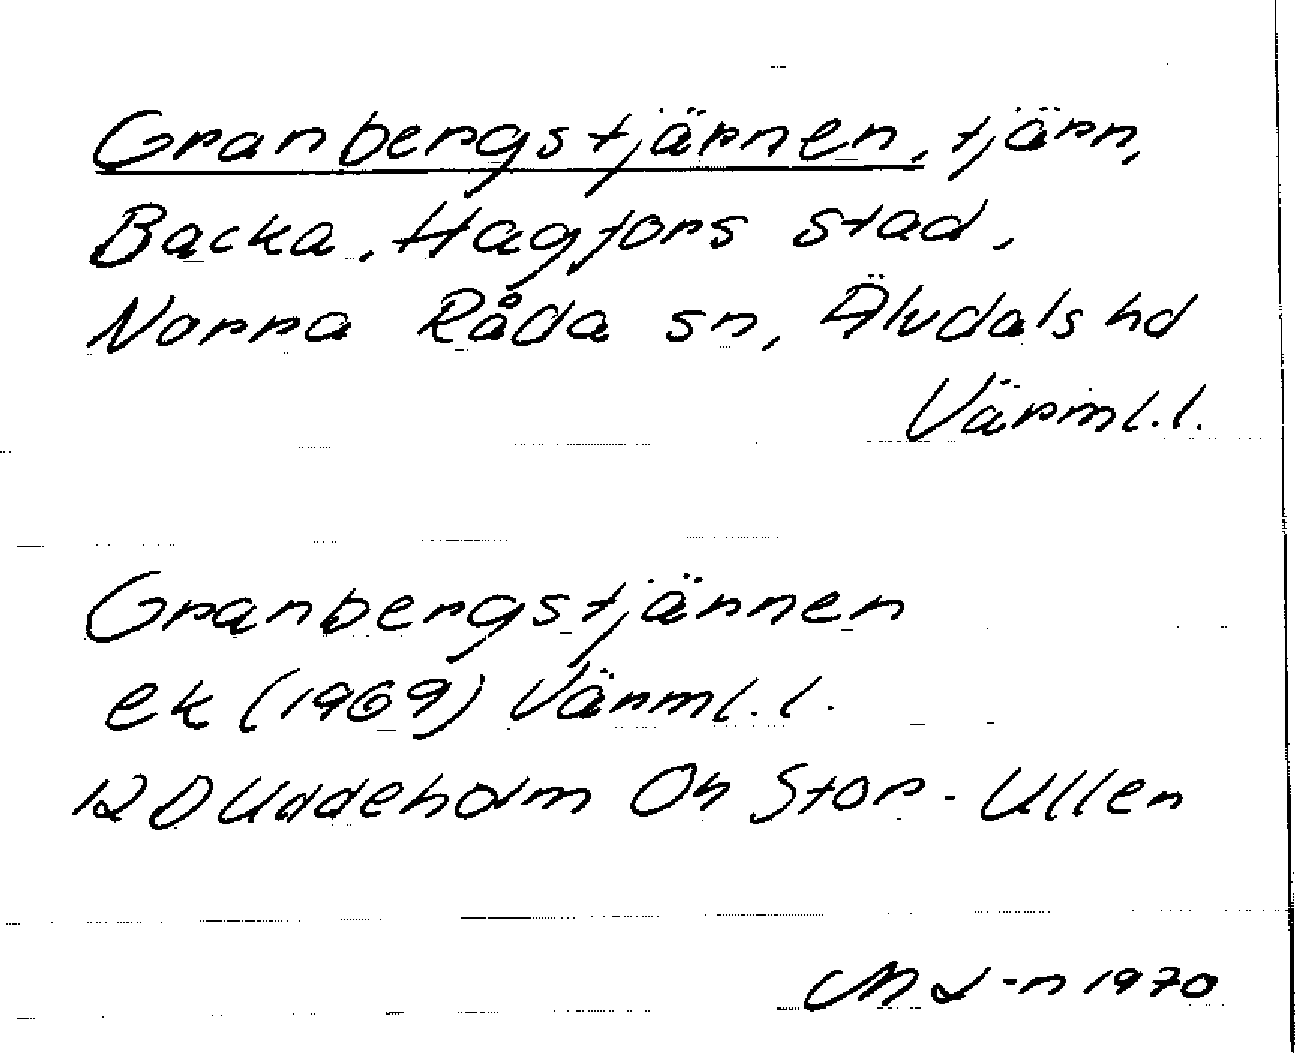 Granbergstjärnen, tjärn,
Backa, Hagfors stad,
Norra Råda sn, Älvdals hd
Värml.l.
Granbergstjärnen
ek (1969) Värml.l.
12D Uddeholm Öh Stor-Ullen
M L-n 1970